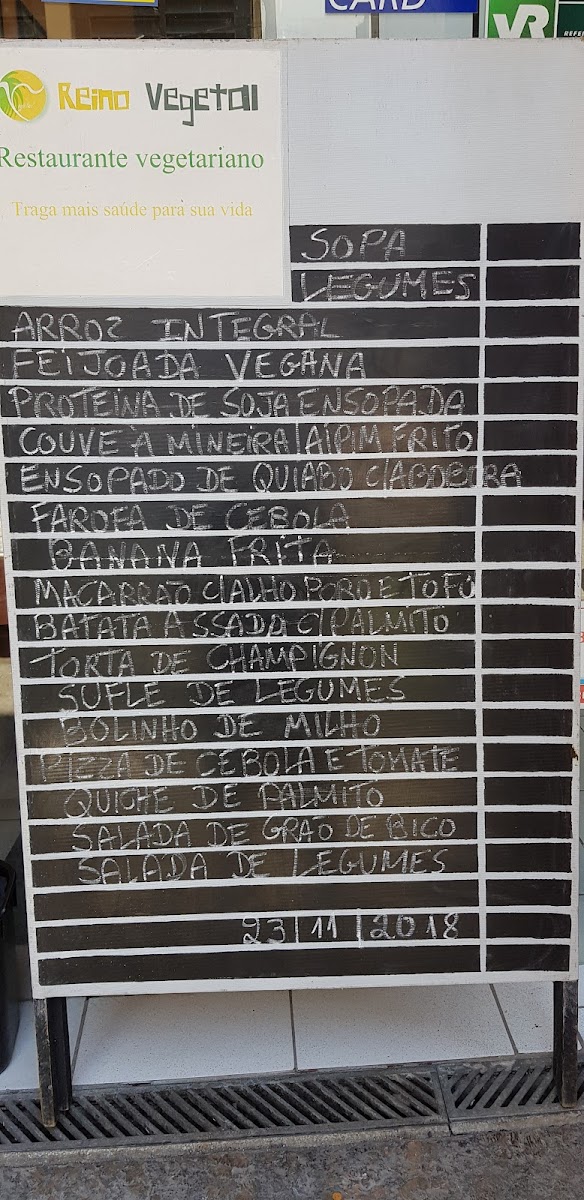 CARD
VR
REFEI
Reino Vegetal
Restaurante vegetariano
Traga mais saúde para sua vida
SOPA
LEGUMES
ARROZ INTEGRAL
FEIJOADA VEGANA
PROTEÍNA DE SOJA ENSOPADA
COUVE À MINEIRA|AIPIM FRITO
ENSOPADO DE QUIABO C/ABOBORA
FAROFA DE CEBOLA
BANANA FRITA
MACARRÃO C/ALHO PORO E TOFU
BATATA ASSADA C/PALMITO
TORTA DE CHAMPIGNON
SUFLÊ DE LEGUMES
BOLINHO DE MILHO
PIZZA DE CEBOLA E TOMATE
QUICHE DE PALMITO
SALADA DE GRÃO DE BICO
SALADA DE LEGUMES
23|11|2018